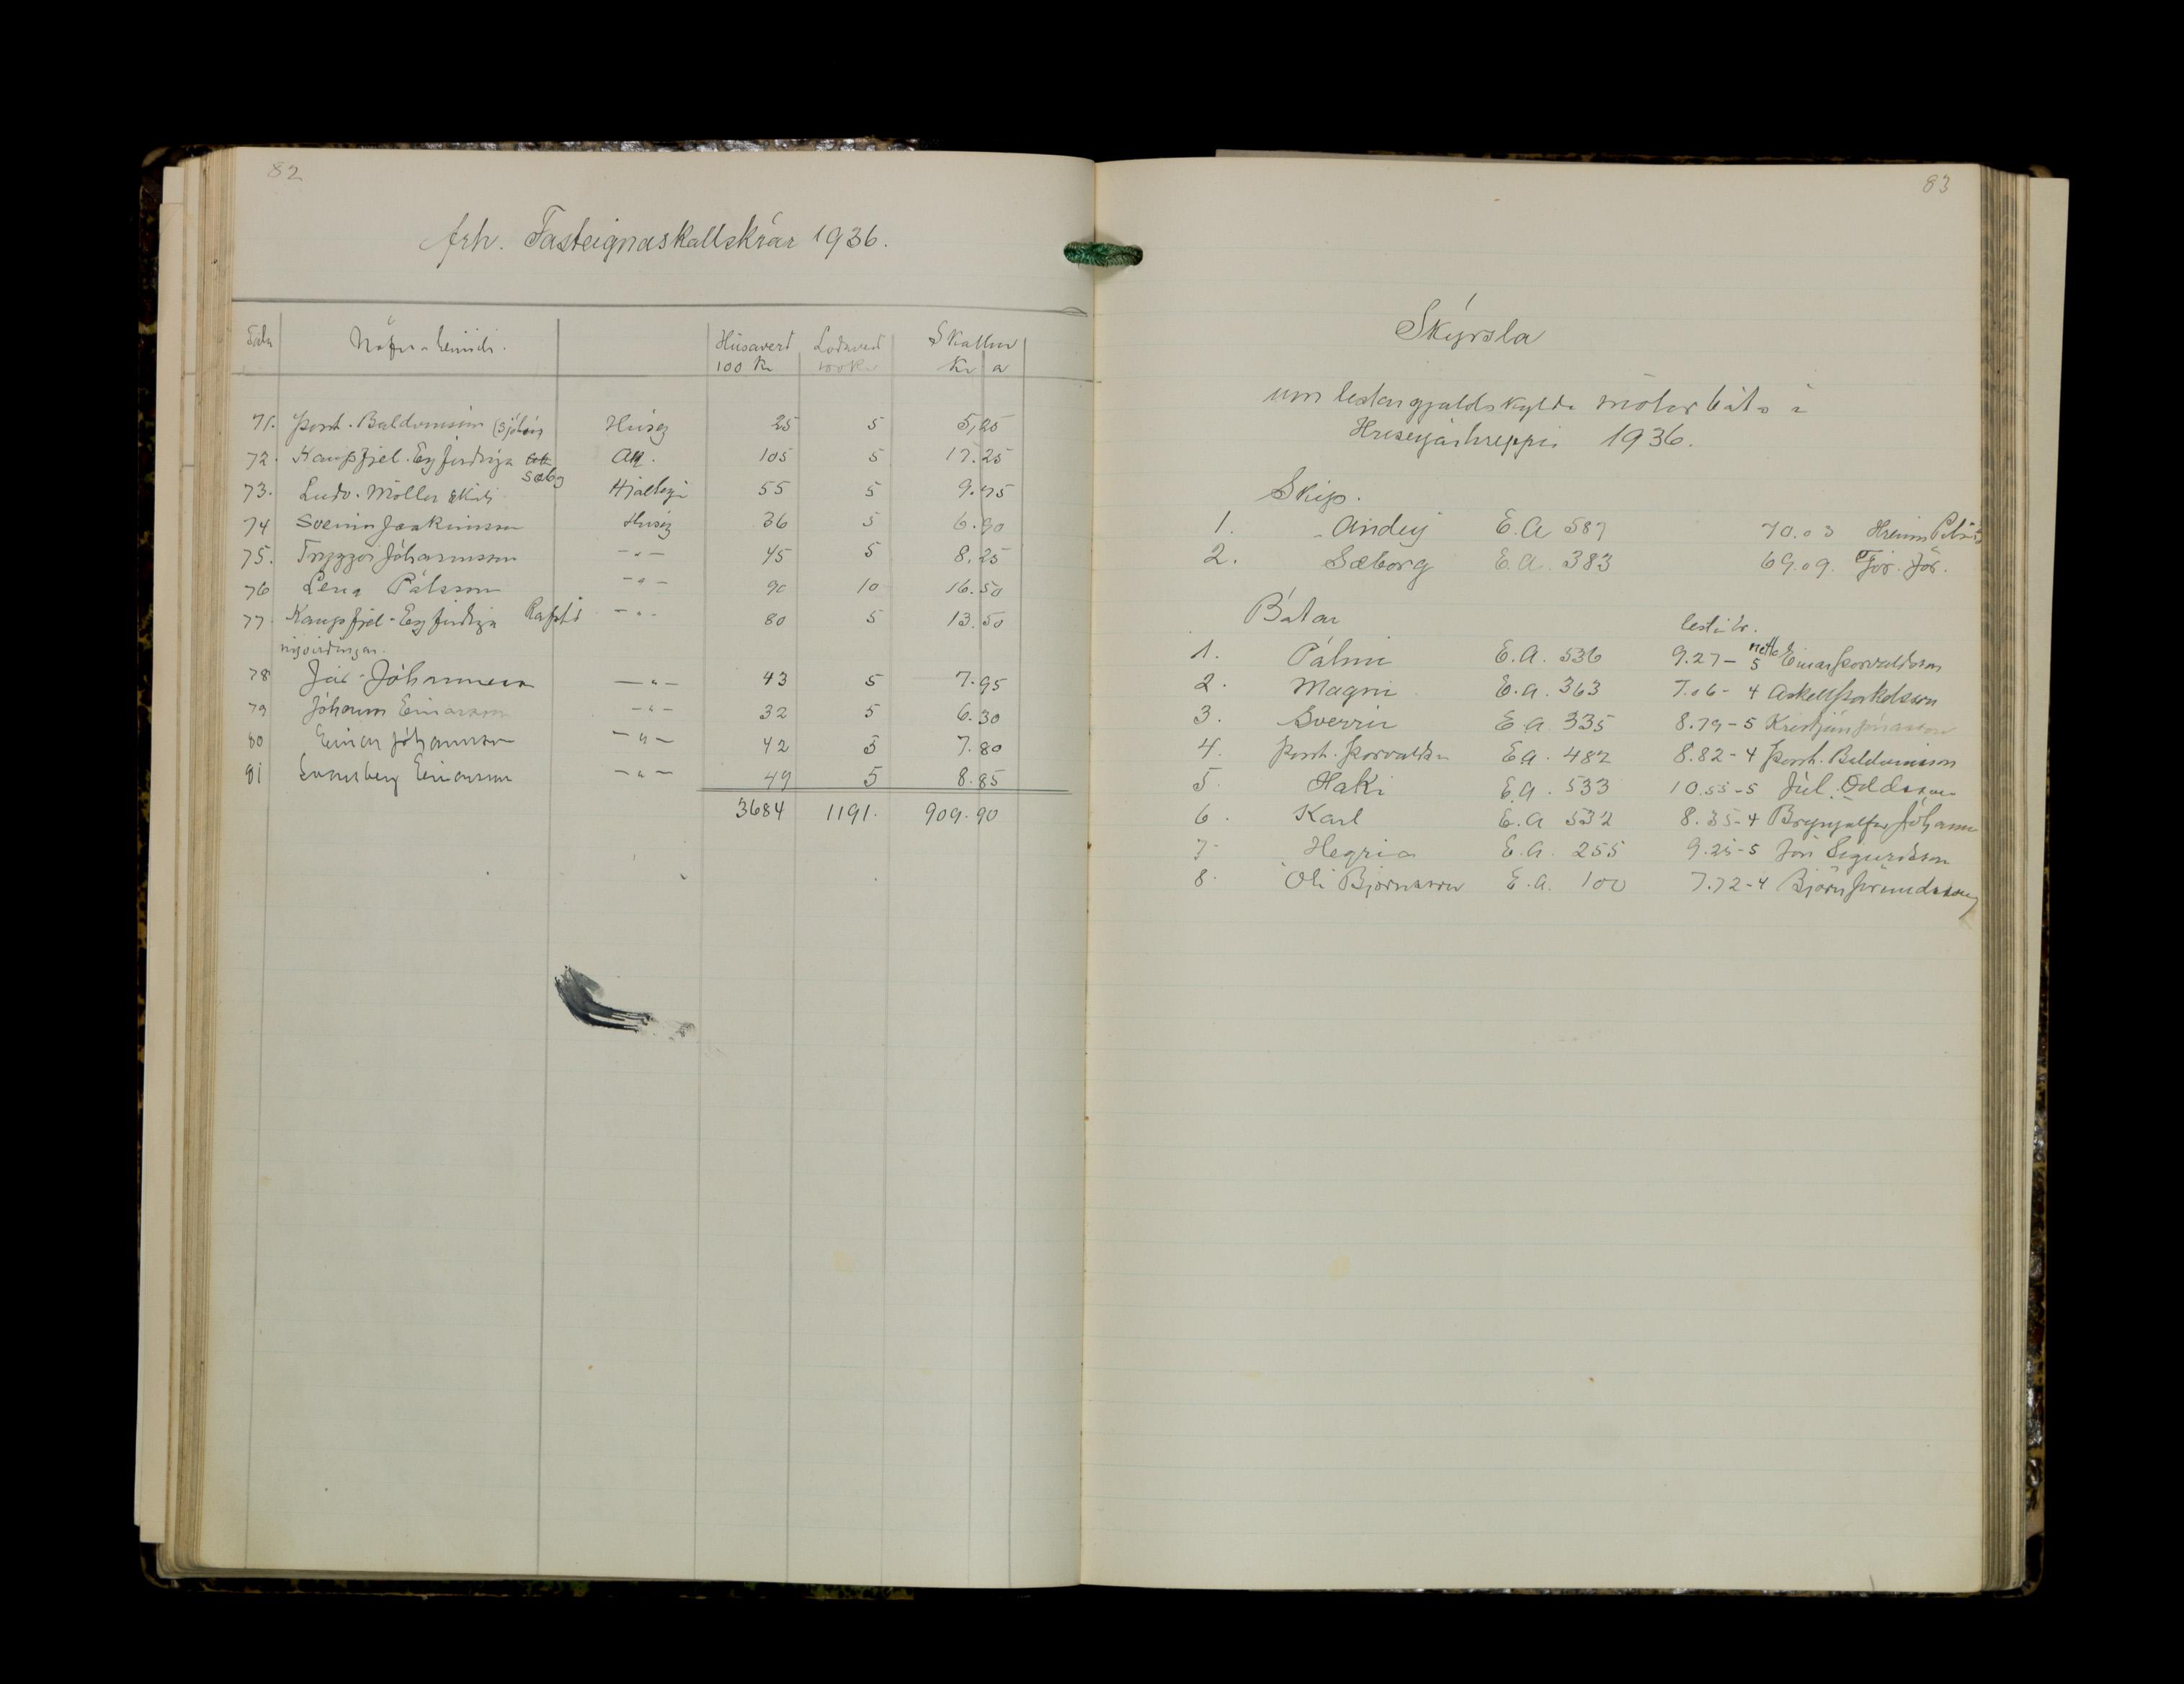 82
frh. Fasteignaskattskrár 1936.
Tala Nöfn - heimili. Húsaverð Lóðaverð Skattur
100 Kr 100 Kr Kr a
71. Þorst. Baldvinsson (sjóhús Húsey 25 5 5,25
72. Kaupfjel. Eyfirðinga Ak. 105 5 17.25
Sæbg
73. Ludv. Möller Skóli Hjalteyri 55 5 9.75
74 Sveinn Jóakimsson Húsey 36 5 6.90
75. Tryggvi Jóhannsson -"- 45 5 8.25
76 Pálsson -"- 90 10 16.50
77. Kaupfjel. Eyfirðinga -"- 80 5 13.50
nývirðingar.
78 Jóhannesson -"- 43 5 7.95
79 Jóhann Einarsson -"- 32 5 6.30
80 Einar Jóhannsson -"- 42 5 7.80
81 Svanberg Einarsson -"- 49 5 8.85
3684 1191. 909.90
83
Skýrsla
um lestargjaldskylda mótorbáta í
Hríseyjarhreppi 1936.
Skip.
1. Andey E.A 587 70.03 Hreinn
2. Sæborg E.A. 383 69.09. Jör.
Bátar lestir br.
1. Pálmi E.A. 536 9.27 - netto 5 Einar Þorvaldsson
2. Magni E.A. 363 7.06 - 4 Áskell Þorkelsson
3. Sverrir E.A 335 8.79 - 5 Kristján Jónasson
4. Þorst. Þorvaldsson E.A. 482 8.82 - 4 Þorst. Baldvinsson
5. Haki E.A. 533 10.55 - 5 Júl. Oddsson
6. Karl E.A 532 8.35 - 4 Brynjólfur Jóhanns
7. Hegri E.A. 255 9.25 - 5 Jón Sigurðsson
8. Óli Björnsson E.A. 100 7.72 - 4 Björn Jörundsson